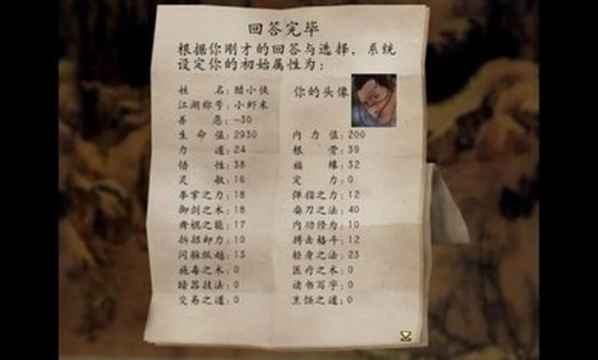 回答完毕
根据你刚才的回答与选择，系统
设定你的初始属性为：
姓 名：醋小侠 你的头像
江湖称号：小虾米
善 恶：-30
生 命 值：2930 内 力 值：200
力 道：24 根 骨：39
悟 性：38 福 缘：32
灵 敏：16 定 力：0
拳掌之力：18 弹指之力：12
御剑之术：18 桑刀之法：40
舞棍之能：17 内功修为：10
拆招卸力：10 搏击格斗：12
闪躲纵越：13 轻身之法：23
施毒之术：0 医疗之术：0
暗器技法：0 读书写字：0
交易之道：0 烹饪之道：0